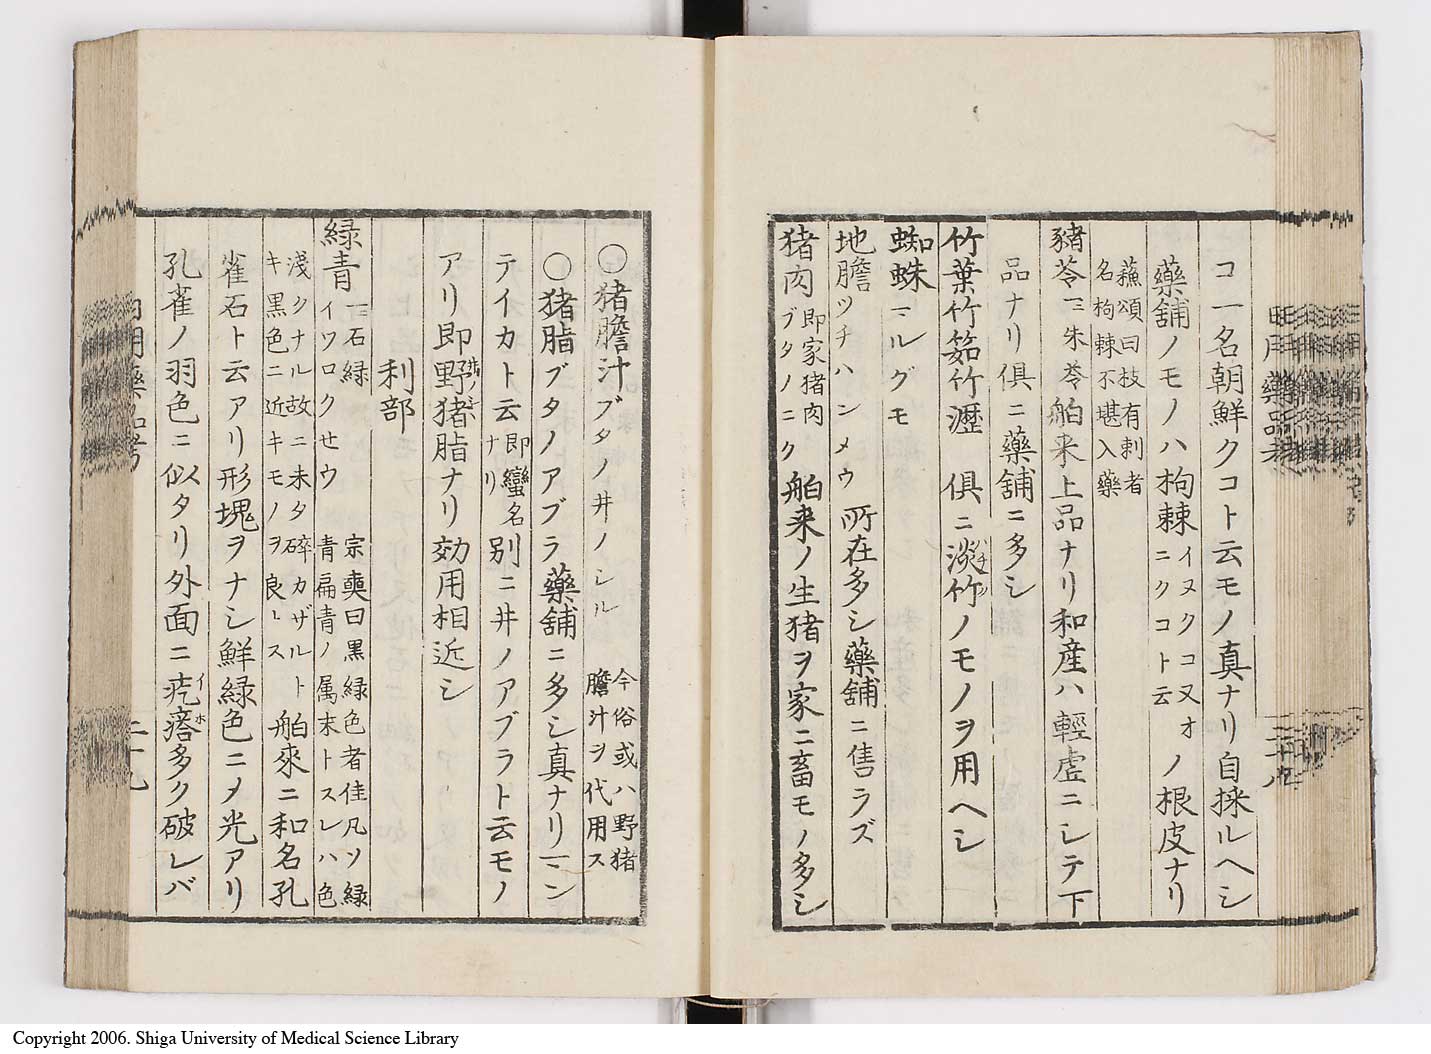 コ一名朝鮮クコト云モノ真ナリ自採ルヘシ
藥舗ノモノハ枸棘イヌクコ又オニクコト云ノ根皮ナリ
蘓頌曰枝有刺者
名枸棘不堪入藥
豬苓一ニ朱苓舶来上品ナリ和産ハ輕虚ニシテ下
品ナリ俱ニ藥舗ニ多シ
竹葉竹筎竹瀝 俱ニ淡竹ノモノヲ用ヘシ
蜘蛛一ニルグモ
地膽ツチハンメウ 所在多シ藥舗ニ售ラズ
猪肉即家猪肉ブタノニク 舶来ノ生猪ヲ家ニ畜モノ多シ
〇猪膽汁ブタノ井ノシル 今俗或ハ野猪膽汁ヲ代用ス
〇猪脂ブタノアブラ藥舗ニ多シ真ナリ一ニン
テイカト云即蠻名ナリ別ニ井ノアブラト云モノ
アリ即野猪脂ナリ効用相近シ
利部
緑青一ニ石緑イワロクせウ 宗奭曰黒緑色者佳凡ソ緑青扁青ノ属末トスレハ色
淺クナル故ニ未タ碎カザルトキ黒色ニ近キモノヲ良トス 舶來ニ和名孔
雀石ト云アリ形塊ヲナシ鮮緑色ニメ光アリ
孔雀ノ羽色ニ似タリ外面ニ疙瘩イホ多ク破レバ
二十九
Copyright 2006. Shiga University of Medical Science Library